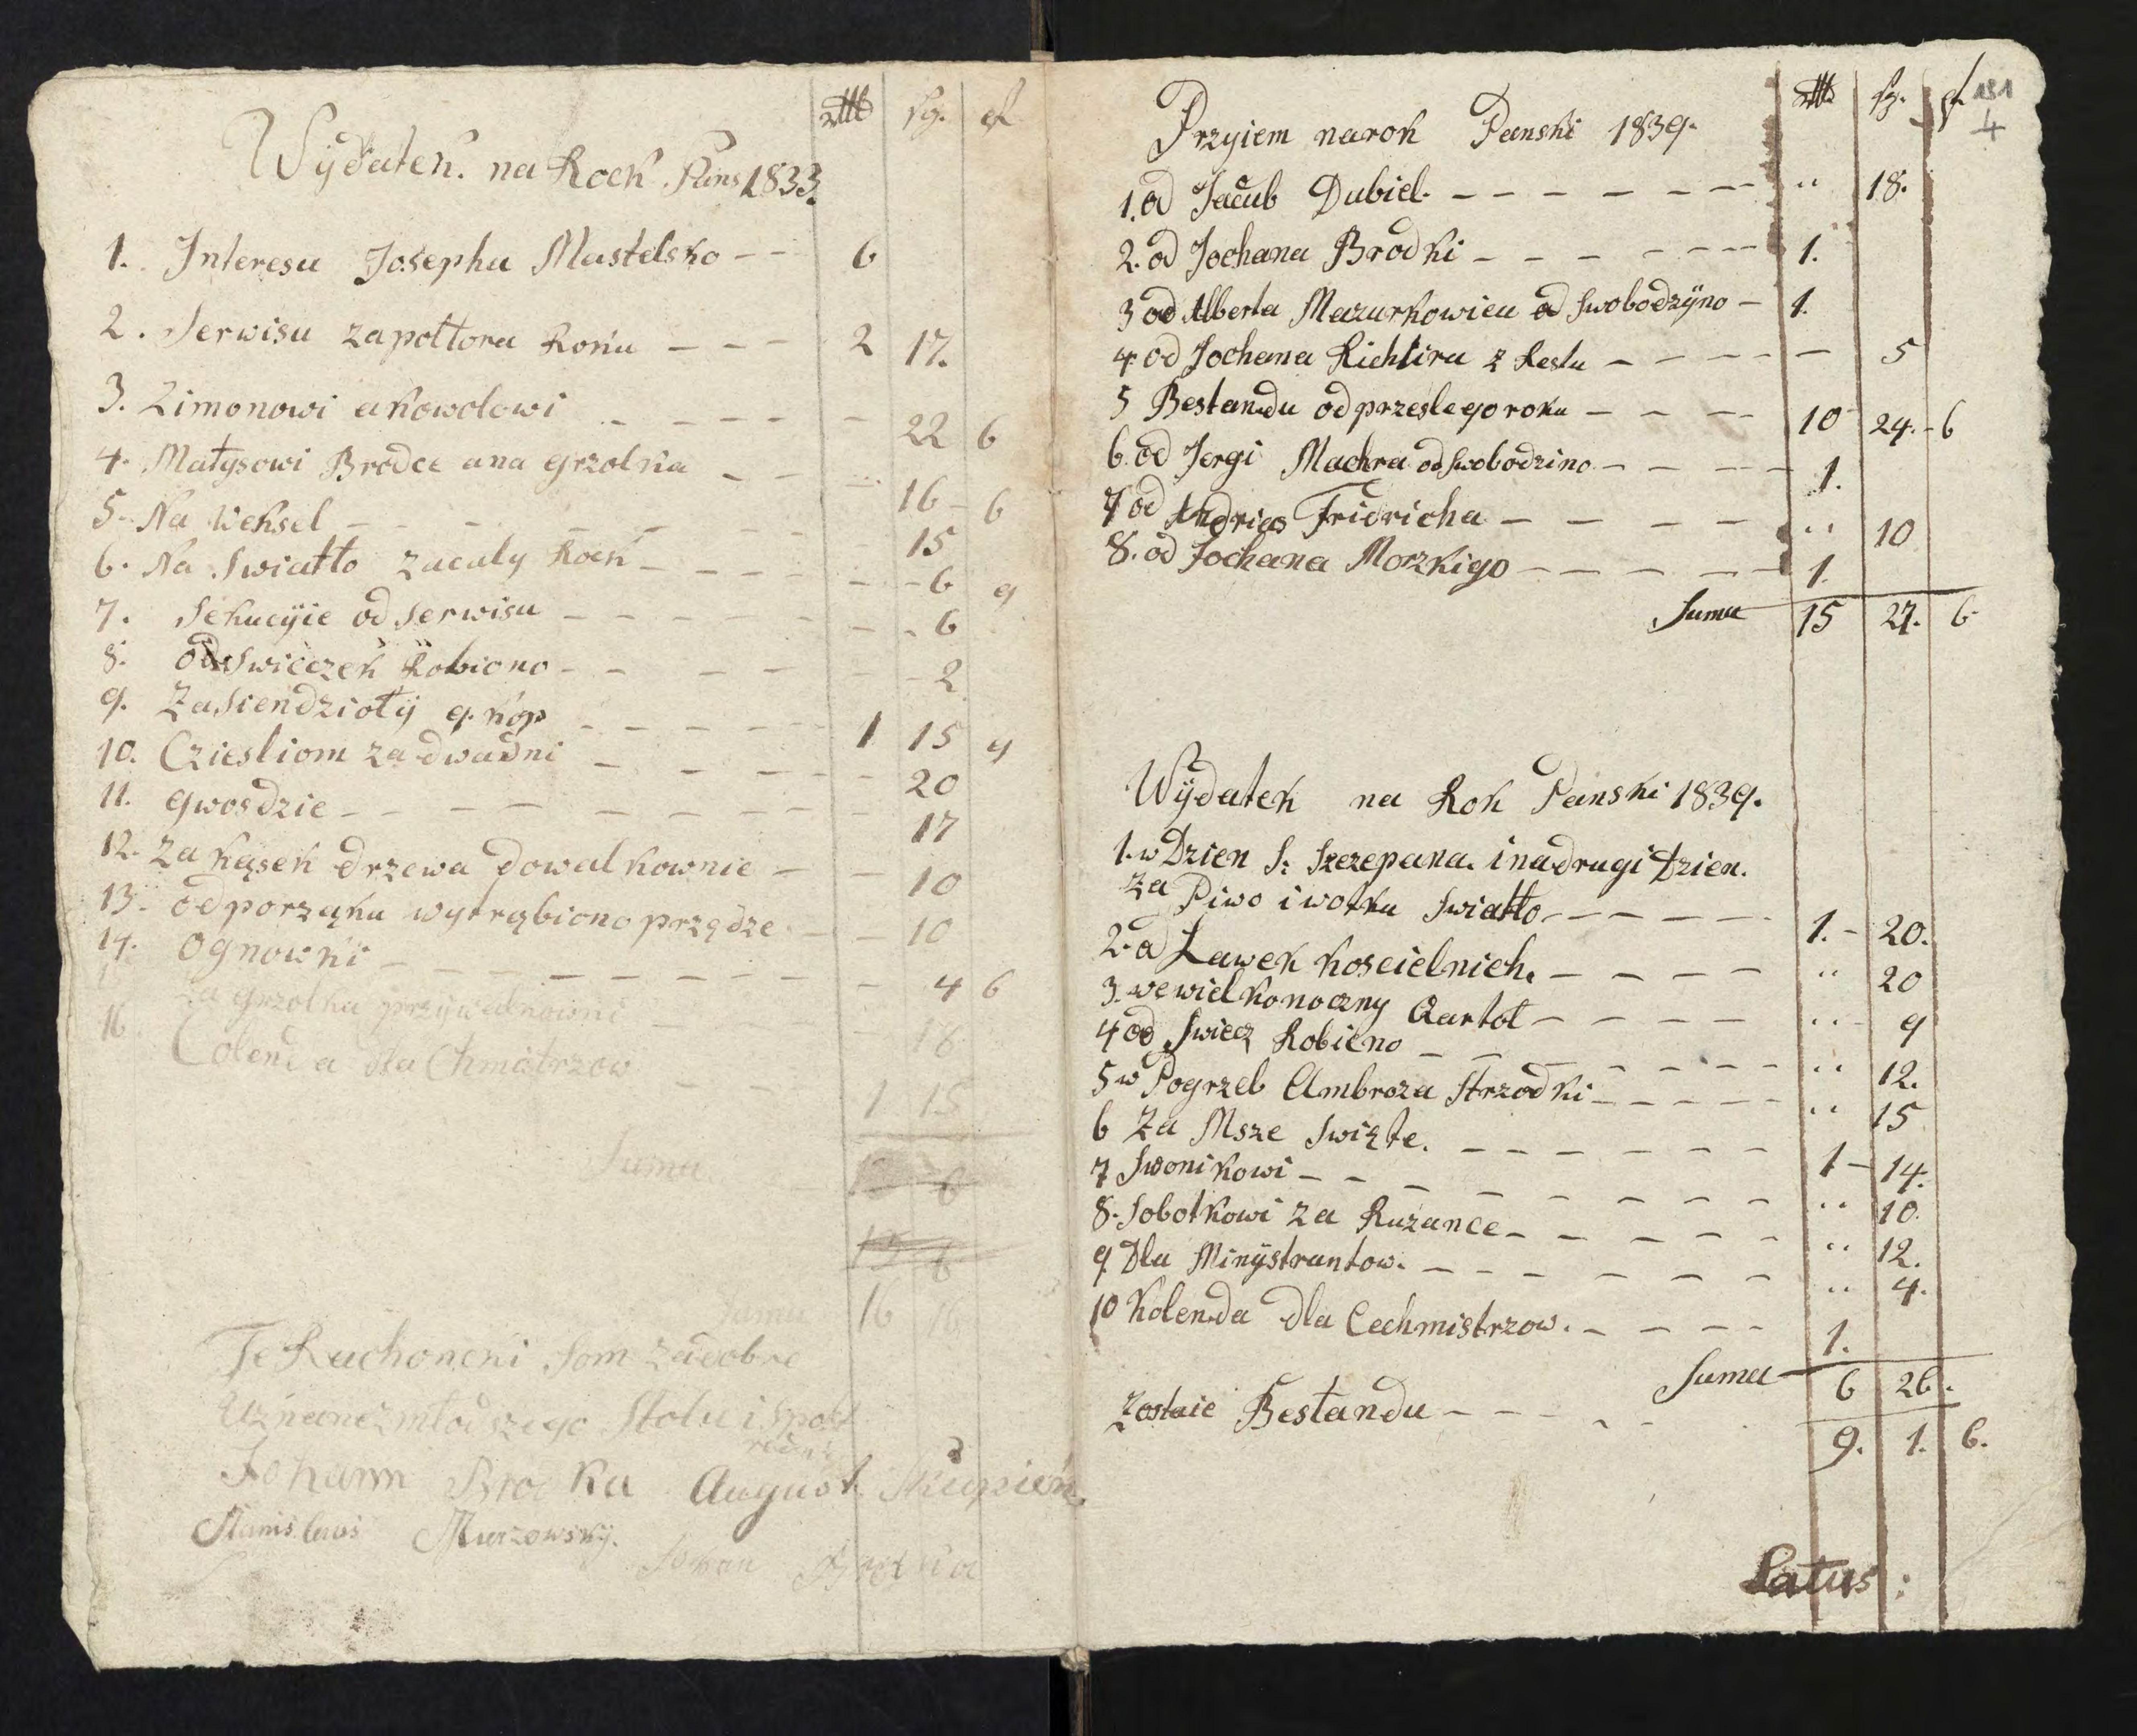 Wÿdatek. na Rock. Pans 1833.
sg. pf
1. Interesu Josepha Mastelsko - - 6
2. Serwisu zapottora Roku - - - 2 17.
3. Zimonowi akowolowi - - - - - 22 6
4. Matysowi Brodce ana grzolka - - - 16 - 6
5. Na Weksel - - - - - - 15
6. Na Swiatło zacały Rock - - - - - 6 9
7. Sekucÿie od Serwisu - - - - - - - 6
8. od Swiczek Robiono - - - - - - 2
9. Zasiendziołÿ 9. kop - - - - - 1 15 9
10. Cziesliom zadwadni - - - - - 20
11. gwosdzie - - - - - - - - 17
12. Za kąsek drzewa dowalkownie - - 10
13. od porząku wyrrąbiono przędze. - - 10
14. Ognowki - - - - - - - - 4 6
za grzolka przÿwalkowni - - 18
16. Colenda dla Chmatrzow - - 1 15
Suma
6
Suma 16 16
Te Rachoncki som zadobre
Uznane z młodszego Stołu i Spol
Johann Brodka August Skupień
Stanislaus Murzowskÿ.
Johan
sg. pf 151
4
Przyiem narok Panski 1839.
1. od Jacub Dubiel. - - - - - - - " 18.
2. od Jochana Brodki - - - - - - 1.
3 od Alberta Mazurkowicu od Swobodzÿno - 1.
4. od Jochana Richtira z Restu - - - - - 5
5 Bestandu od przeslego roku - - - - 10 24. - 6
6. od Jergi Machra od Swobodzino - - - - - 1.
7 od Andrias Fridricha - - - - " 10
8. od Jochana Morzkigo - - - - - - 1.
Suma 15 27. 6
Wÿdatek na Rok Panski 1839.
1. w Dzien S: Szczepana. i nadrugi Dzien.
Za Piwo i wotka Swiatło - - - - - 1. - 20.
2. od Ławek Koscielnich. - - - - " 20
3. we wielkonoczny Qartoł - - - - " 9
4 od Swiecz Robieno - - - - - - " 12.
5 w Pogrzeb Ambroza Strzodki - - - - - " 15
6 Za Msze Swięte. - - - - - - 1 - 14.
7 Swonikowi - - - - - - - - " 10.
8. Sobotkowi za Ruzance - - - - - - " 12.
9. Dla Minÿstrantow. - - - - - - " 4.
10 Kolenda dla Cechmistrzow. - - - - 1.
Suma 6 26.
Zostaie Bestandu - - - - - 9. 1. 6.
Latus :